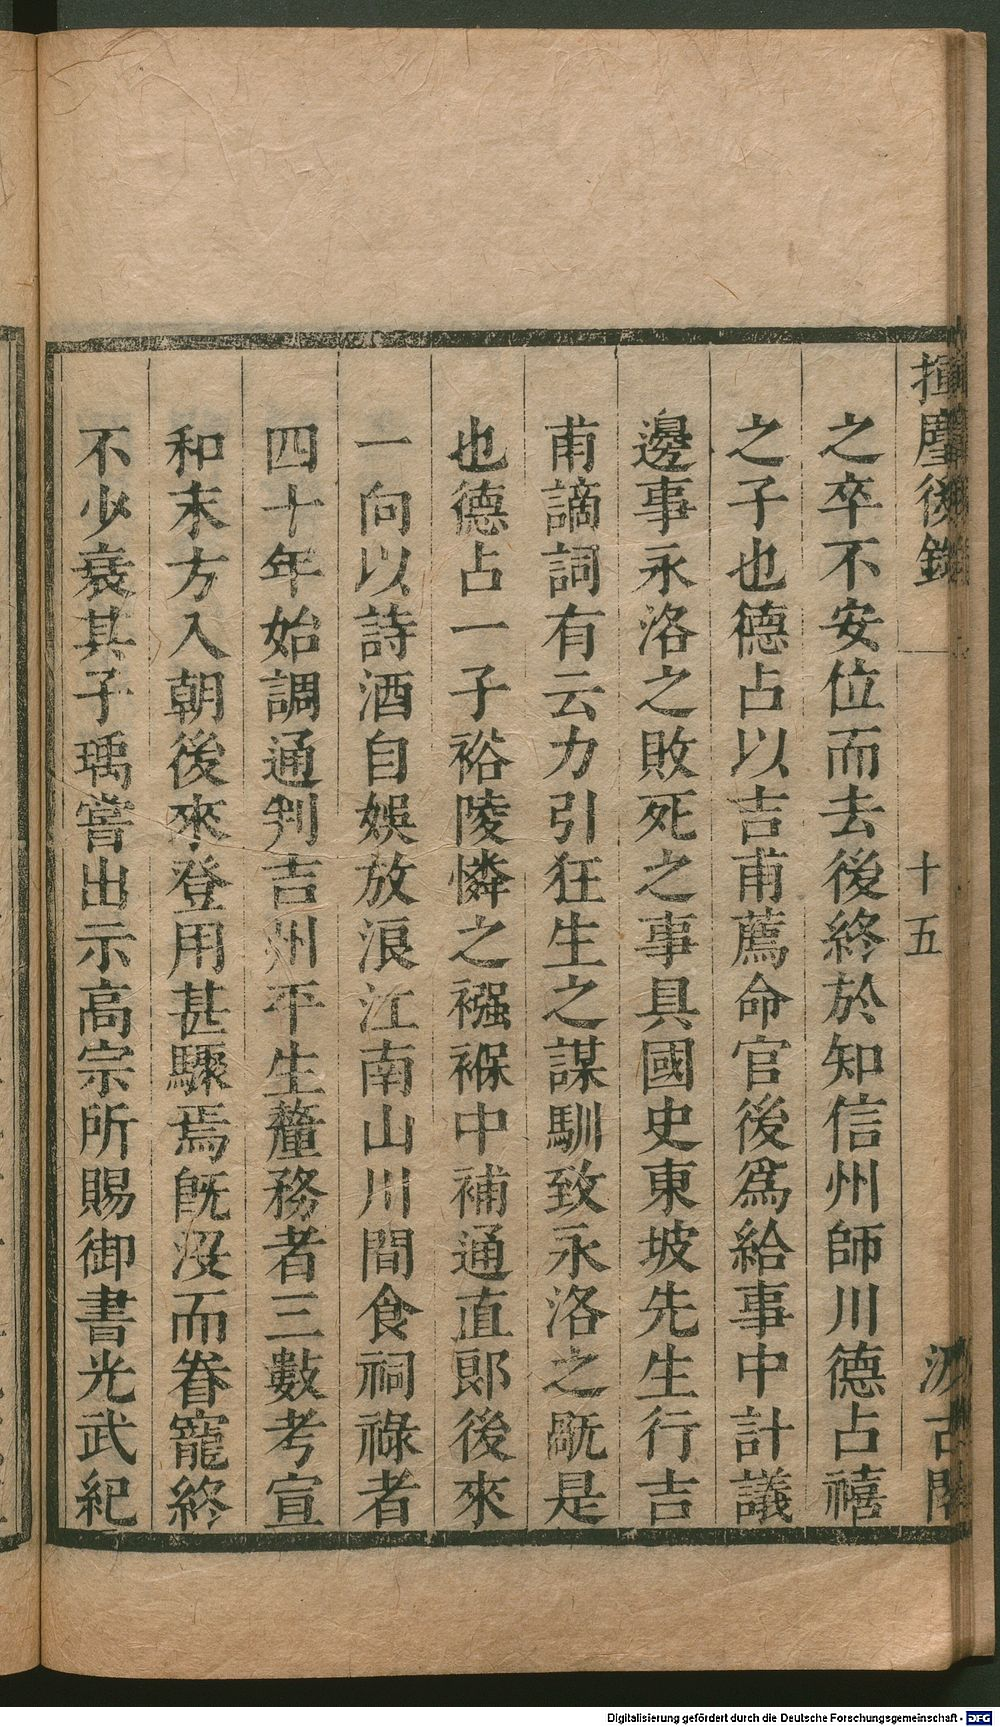 揮麈後錄
十五
汲古閣
之卒不安位而去後終於知信州師川德占禧
之子也德占以吉甫薦命官後爲給事中計議
邊事永洛之敗死之事具國史東坡先生行吉
甫謫詞有云力引狂生之謀馴致永洛之旤是
也德占一子裕陵憐之襁褓中補通直郎後來
一向以詩酒自娛放浪江南山川間食祠祿者
四十年始調通判吉州平生釐務者三數考宣
和末方入朝後來登用甚驟焉旣沒而眷寵終
不少衰其子瑀嘗出示高宗所賜御書光武紀
Digitalisierung gefördert durch die Deutsche Forschungsgemeinschaft - DFG